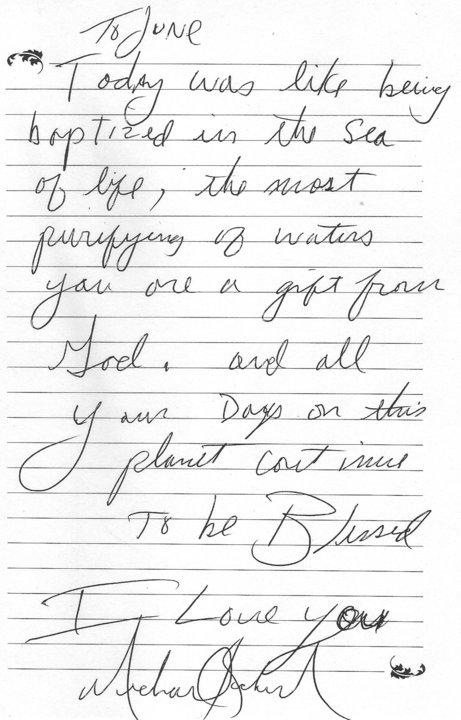 To June
Today was like being
baptized in the Sea
of life, the most
purifying of waters
you are a gift from
God. and all
your Days on this
planet continue
To be Blessed
I Love you